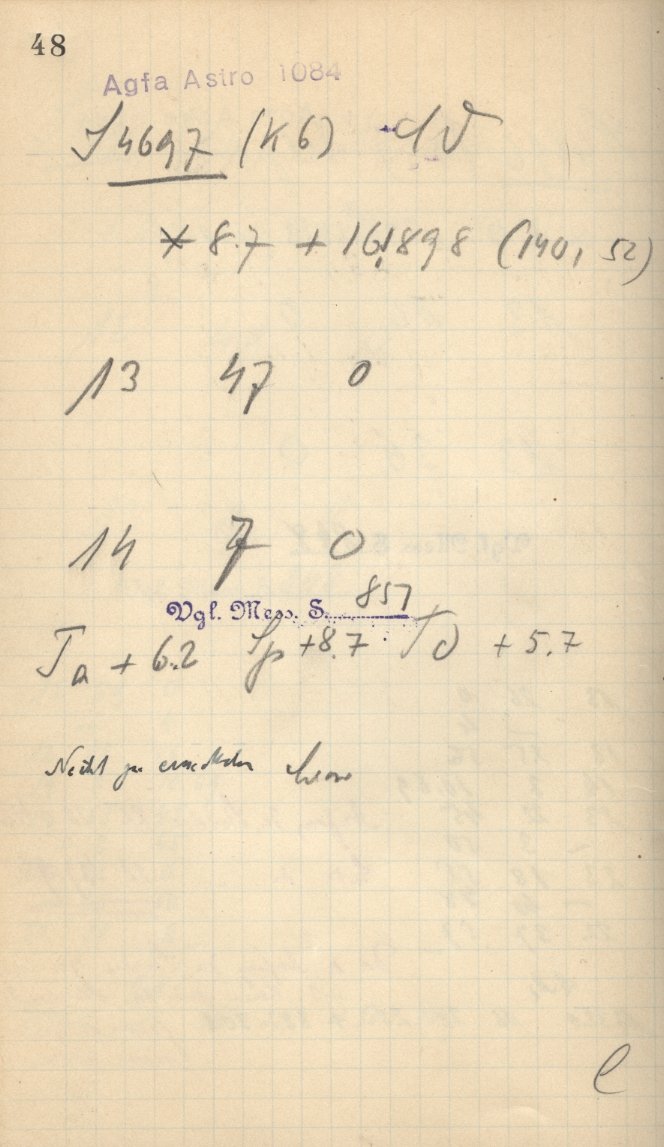 48
Agfa Astro 1084
S 4697 (K6)
* 8.7 + 16,1898 (140, 52)
13 47 0
14 7 0
Vgl. Mess. S. 857
Ta + 6.2 Sp + 8.7 Td + 5.7
Nicht zu ermitteln
e